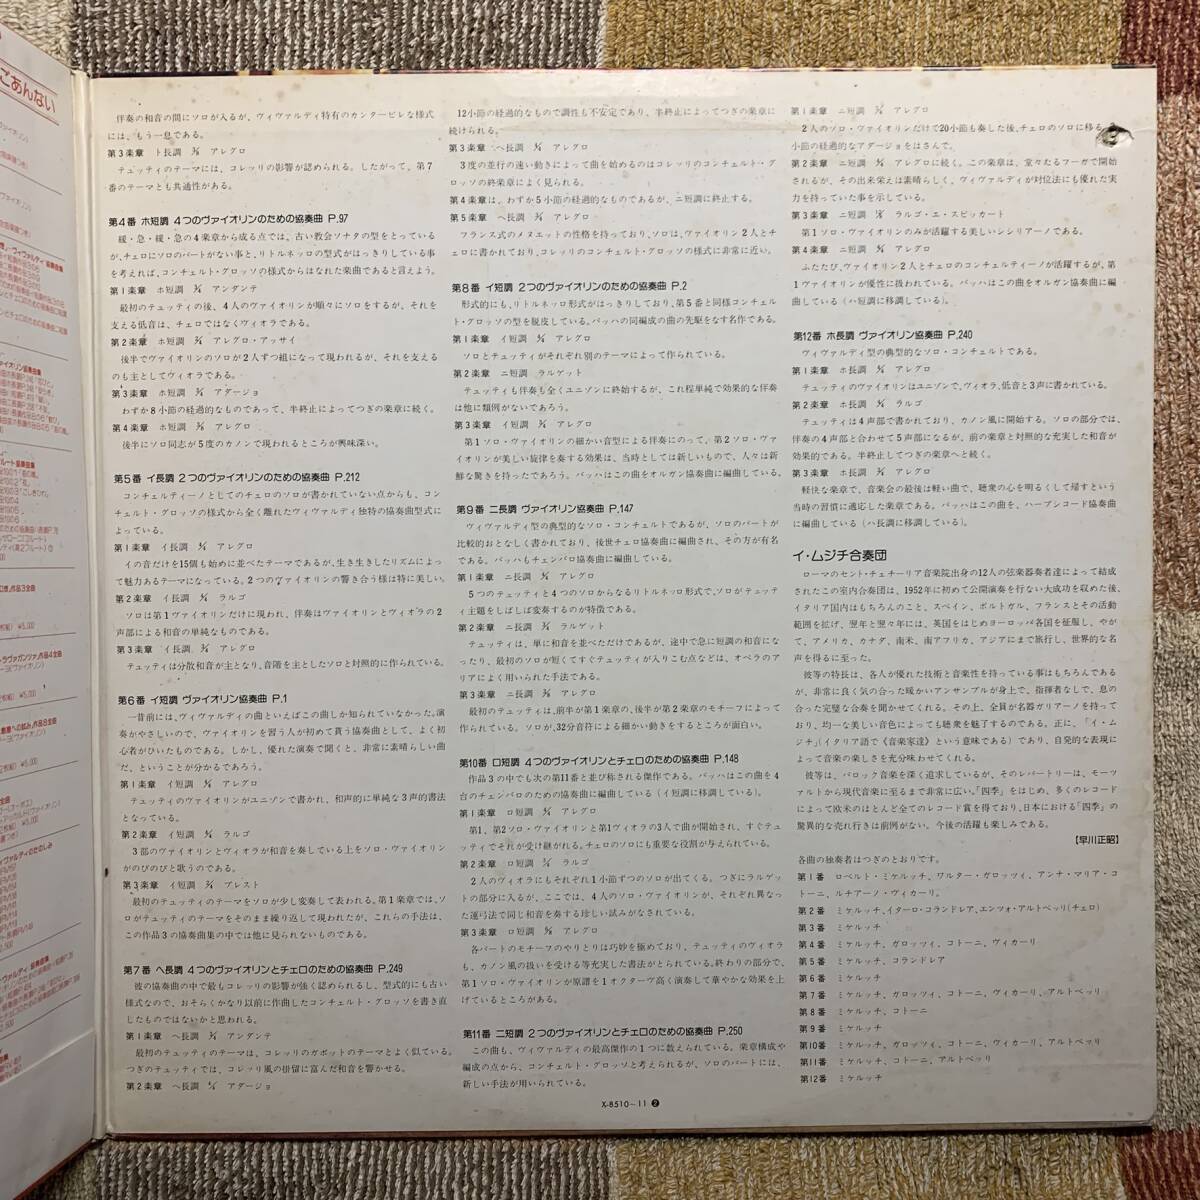 ごあんない
伴奏の和音の間にソロが入るが、ヴィヴァルディ特有のカンタービレな様式
には、もう一息である。
第3楽章 ト長調 アレグロ
テュッティのテーマには、コレッリの影響が認められる。したがって、第7
番のテーマとも共通性がある。
第4番 ホ短調 4つのヴァイオリンのための協奏曲 P.97
緩・急・緩・急の4楽章から成る点では、古い教会ソナタの型をとっている
が、チェロにソロのパートがない事と、リトルネッロの型式がはっきりしている事
を考えれば、コンチェルト・グロッソの様式からはなれた楽曲であると言えよう。
第1楽章 ホ短調 アンダンテ
最初のテュッティの後、4人のヴァイオリンが順々にソロをするが、それを
支える低音は、チェロではなくヴィオラである。
第2楽章 ホ短調 アレグロ・アッサイ
後半でヴァイオリンのソロが2人ずつ組になって現われるが、それを支える
のも主としてヴィオラである。
第3楽章 ホ短調 アダージョ
わずか8小節の経過的なものであって、半終止によってつぎの楽章に続く。
第4楽章 ホ短調 アレグロ
後半にソロ同志が5度のカノンで現われるところが興味深い。
第5番 イ長調 2つのヴァイオリンのための協奏曲 P.212
コンチェルティーノとしてのチェロのソロが書かれていない点からも、コン
チェルト・グロッソの様式から全く離れたヴィヴァルディ独特の協奏曲型式に
よっている。
第1楽章 イ長調 アレグロ
イの音だけを15個も始めに並べたテーマであるが、生き生きしたリズムによっ
て魅力あるテーマになっている。2つのヴァイオリンの響き合う様は特に美しい。
第2楽章 イ長調 ラルゴ
ソロは第1ヴァイオリンだけに現われ、伴奏はヴァイオリンとヴィオラの2
声部による和音の単純なものである。
第3楽章 イ長調 アレグロ
テュッティは分散和音が主となり、音階を主としたソロと対照的に作られている。
第6番 イ短調 ヴァイオリン協奏曲 P.1
一昔前には、ヴィヴァルディの曲といえばこの曲しか知られていなかった。演
奏がやさしいので、ヴァイオリンを習う人が初めて貰う協奏曲として、よく初
心者がひいたものである。しかし、優れた演奏で聞くと、非常に素晴らしい曲
だ、ということが分かるであろう。
第1楽章 イ短調 アレグロ
テュッティのヴァイオリンがユニゾンで書かれ、和声的に単純な3声的書法
となっている。
第2楽章 イ短調 ラルゴ
3部のヴァイオリンとヴィオラが和音を奏している上をソロ・ヴァイオリン
がのびのびと歌うのである。
第3楽章 イ短調 プレスト
最初のテュッティのテーマをソロが少し変奏して表われる。第1楽章では、ソ
ロがテュッティのテーマをそのまま繰り返して現われたが、これらの手法は、
この作品3の協奏曲集の中では他に見られないものである。
第7番 ヘ長調 4つのヴァイオリンとチェロのための協奏曲 P.249
彼の協奏曲の中で最もコレッリの影響が強く認められるし、型式的にも古い
様式なので、おそらくかなり以前に作曲したコンチェルト・グロッソを書き直
したものではないかと思われる。
第1楽章 ヘ長調 アンダンテ
最初のテュッティのテーマは、コレッリのガボットのテーマとよく似ている。
つぎのテュッティでは、コレッリ風の掛留に富んだ和音を響かせる。
第2楽章 ヘ長調 アダージョ
12小節の経過的なもので調性も不安定であり、半終止によってつぎの楽章に
続けられる。
第3楽章 ヘ長調 アレグロ
3度の並行の速い動きによって曲を始めるのはコレッリのコンチェルト・グ
ロッソの終楽章によく見られる。
第4楽章は、わずか5小節の経過的なものであるが、ニ短調に終止する。
第5楽章 ヘ長調 アレグロ
フランス式のメヌエットの性格を持っており、ソロは、ヴァイオリン2人とチ
ェロに書かれており、コレッリのコンチェルト・グロッソの様式に非常に近い。
第8番 イ短調 2つのヴァイオリンのための協奏曲 P.2
形式的にも、リトルネッロ形式がはっきりしており、第5番と同様コンチェル
ト・グロッソの型を脱皮している。バッハの同編成の曲の先駆をなす名作である。
第1楽章 イ短調 アレグロ
ソロとテュッティがそれぞれ別のテーマによって作られている。
第2楽章 ニ短調 ラルゲット
テュッティも伴奏も全くユニゾンに終始するが、これ程単純で効果的な伴奏
は他に類例がないであろう。
第3楽章 イ短調 アレグロ
第1ソロ・ヴァイオリンの細かい音型による伴奏にのって、第2ソロ・ヴァ
イオリンが美しい旋律を奏する効果は、当時としては新しいもので、人々は新
鮮な驚きを持ったであろう。バッハはこの曲をオルガン協奏曲に編曲している。
第9番 ニ長調 ヴァイオリン協奏曲 P.147
ヴィヴァルディ型の典型的なソロ・コンチェルトであるが、ソロのパートが
比較的おとなしく書かれており、後世チェロ協奏曲に編曲され、その方が有名
である。バッハもチェンバロ協奏曲に編曲している。
第1楽章 ニ長調 アレグロ
5つのテュッティと4つのソロからなるリトルネッロ形式で、ソロがテュッテ
ィ主題をしばしば変奏するのが特徴である。
第2楽章 ニ長調 ラルゲット
テュッティは、単に和音を並べただけであるが、途中で急に短調の和音にな
ったり、最初のソロが短くてすぐテュッティが入りこむ点などは、オペラのア
リアによく用いられた手法である。
第3楽章 ニ長調 アレグロ
最初のテュッティは、前半が第1楽章の、後半が第2楽章のモチーフによって
作られている。ソロが、32分音符による細かい動きをするところが面白い。
第10番 ロ短調 4つのヴァイオリンとチェロのための協奏曲 P.148
作品3の中でも次の第11番と並び称される傑作である。バッハはこの曲を4
台のチェンバロのための協奏曲に編曲している(イ短調に移調している)。
第1楽章 ロ短調 アレグロ
第1、第2ソロ・ヴァイオリンと第1ヴィオラの3人で曲が開始され、すぐテュ
ッティでそれが受け継がれる。チェロのソロにも重要な役割が与えられている。
第2楽章 ロ短調 ラルゴ
2人のヴィオラにもそれぞれ1小節ずつのソロが出てくる。つぎにラルゲッ
トの部分に入るが、ここでは、4人のソロ・ヴァイオリンが、それぞれ異なっ
た運弓法で同じ和音を奏する珍しい試みがなされている。
第3楽章 ロ短調 アレグロ
各パートのモチーフのやりとりは巧妙を極めており、テュッティのヴィオラ
も、カノン風の扱いを受ける等充実した書法がとられている。終わりの部分で、
第1ソロ・ヴァイオリンが原譜を1オクターヴ高く演奏して華やかな効果を上
げているところがある。
第11番 ニ短調 2つのヴァイオリンとチェロのための協奏曲 P.250
この曲も、ヴィヴァルディの最高傑作の1つに数えられている。楽章構成や
編成の点から、コンチェルト・グロッソと考えられるが、ソロのパートには、
新しい手法が用いられている。
第1楽章 ニ短調 アレグロ
2人のソロ・ヴァイオリンだけで20小節も奏した後、チェロのソロに移る。
小節の経過的なアダージョをはさんで、
第2楽章 ニ短調 アレグロに続く。この楽章は、堂々たるフーガで開始
されるが、その出来栄えは素晴らしく、ヴィヴァルディが対位法にも優れた実
力を持っていた事を示している。
第3楽章 ニ短調 ラルゴ・エ・スピッカート
第1ソロ・ヴァイオリンのみが活躍する美しいシシリアーノである。
第4楽章 ニ短調 アレグロ
ふたたび、ヴァイオリン2人とチェロのコンチェルティーノが活躍するが、第
1ヴァイオリンが優性に扱われている。バッハはこの曲をオルガン協奏曲に編
曲している(ハ短調に移調している)。
第12番 ホ長調 ヴァイオリン協奏曲 P.240
ヴィヴァルディ型の典型的なソロ・コンチェルトである。
第1楽章 ホ長調 アレグロ
テュッティのヴァイオリンはユニゾンで、ヴィオラ、低音と3声に書かれている。
第2楽章 ホ長調 ラルゴ
テュッティは4声部で書かれており、カノン風に開始する。ソロの部分では、
伴奏の4声部と合わせて5声部になるが、前の楽章と対照的な充実した和音が
効果的である。半終止してつぎの楽章へと続く。
第3楽章 ホ長調 アレグロ
軽快な楽章で、音楽会の最後は軽い曲で、聴衆の心を明るくして帰すという
当時の習慣に適応した楽章である。バッハはこの曲を、ハープシコード協奏曲
に編曲している(ハ長調に移調している)。
イ・ムジチ合奏団
ローマのセント・チェチーリア音楽院出身の12人の弦楽器奏者達によって結成
されたこの室内合奏団は、1952年に初めて公開演奏を行ない大成功を収めた後、
イタリア国内はもちろんのこと、スペイン、ポルトガル、フランスとその活動
範囲を拡げ、翌年と翌々年には、英国をはじめヨーロッパ各国を征服し、やが
て、アメリカ、カナダ、南米、南アフリカ、アジアにまで旅行し、世界的な名
声を得るに至った。
彼等の特長は、各人が優れた技術と音楽性を持っている事はもちろんである
が、非常に良く気の合った暖かいアンサンブルが身上で、指揮者なしで、息の
合った完璧な合奏を聞かせてくれる。その上、全員が名器ガリアーノを持って
おり、均一な美しい音色によっても聴衆を魅了するのである。正に、「イ・ム
ジチ」(イタリア語で《音楽家達》という意味である)であり、自発的な表現に
よって音楽の楽しさを充分味わせてくれる。
彼等は、バロック音楽を深く追求しているが、そのレパートリーは、モーツ
ァルトから現代音楽に至るまで非常に広い。「四季」をはじめ、多くのレコード
によって欧米のほとんど全てのレコード賞を得ており、日本における「四季」の
驚異的な売れ行きは前例がない。今後の活躍も楽しみである。
【早川正昭】
各曲の独奏者はつぎのとおりです。
第1番 ロベルト・ミケルッチ、ワルター・ガロッツィ、アンナ・マリア・コ
トーニ、ルチアーノ・ヴィカーリ。
第2番 ミケルッチ、イターロ・コランドレア、エンツォ・アルトベッリ(チェロ)
第3番 ミケルッチ
第4番 ミケルッチ、ガロッツィ、コトーニ、ヴィカーリ
第5番 ミケルッチ、コランドレア
第6番 ミケルッチ
第7番 ミケルッチ、ガロッツィ、コトーニ、ヴィカーリ、アルトベッリ
第8番 ミケルッチ、コトーニ
第9番 ミケルッチ
第10番 ミケルッチ、ガロッツィ、コトーニ、ヴィカーリ、アルトベッリ
第11番 ミケルッチ、コトーニ、アルトベッリ
第12番 ミケルッチ
X-8510~11 ❷